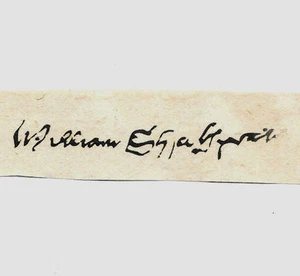 William Shakspē